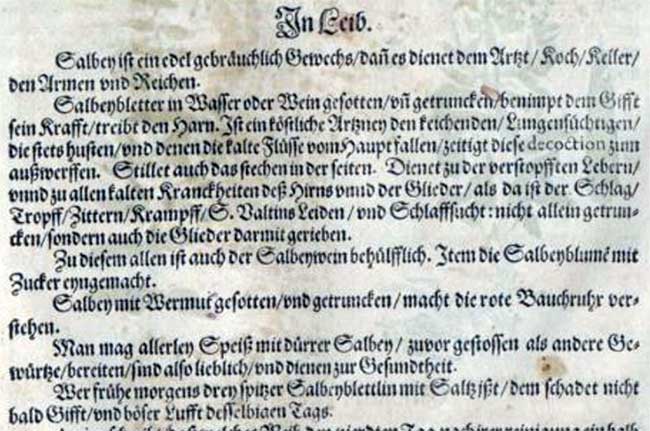 In Leib.
Salbey ist ein edel gebräuchlich Gewechs/dañ es dienet dem Artzt/Koch/Keller/
den Armen vnd Reichen.
Salbeybletter in Wasser oder Wein gesotten/vñ getruncken/benimpt dem Gifft
sein Krafft/treibt den Harn. Ist ein köstliche Artzney den keichenden/Lungensüchtigen/
die stets husten/vnd denen die kalte Flüsse vom Haupt fallen/zeitigt diese decoction zum
außwerffen. Stillet auch das stechen in der seiten. Dienet zu der verstopfften Lebern/
vnnd zu allen kalten Kranckheiten deß Hirns vnnd der Glieder/als da ist der Schlag/
Tropff/Zittern/Krampff/S. Valtins Leiden/vnd Schlaffsucht: nicht allein getrun-
cken/sondern auch die Glieder darmit gerieben.
Zu diesem allen ist auch der Salbeywein behülfflich. Item die Salbeyblumẽ mit
Zucker eyngemacht.
Salbey mit Wermut gesotten/vnd getruncken/macht die rote Bauchruhr ver-
stehen.
Man mag allerley Speiß mit dürrer Salbey/zuvor gestossen als andere Ge-
würtze/bereiten/sind also lieblich/vnd dienen zur Gesundtheit.
Wer frühe morgens drey spitzer Salbeyblettlin mit Saltz ißt/dem schadet nicht
bald Gifft/vnd böser Lufft desselbigen Tags.